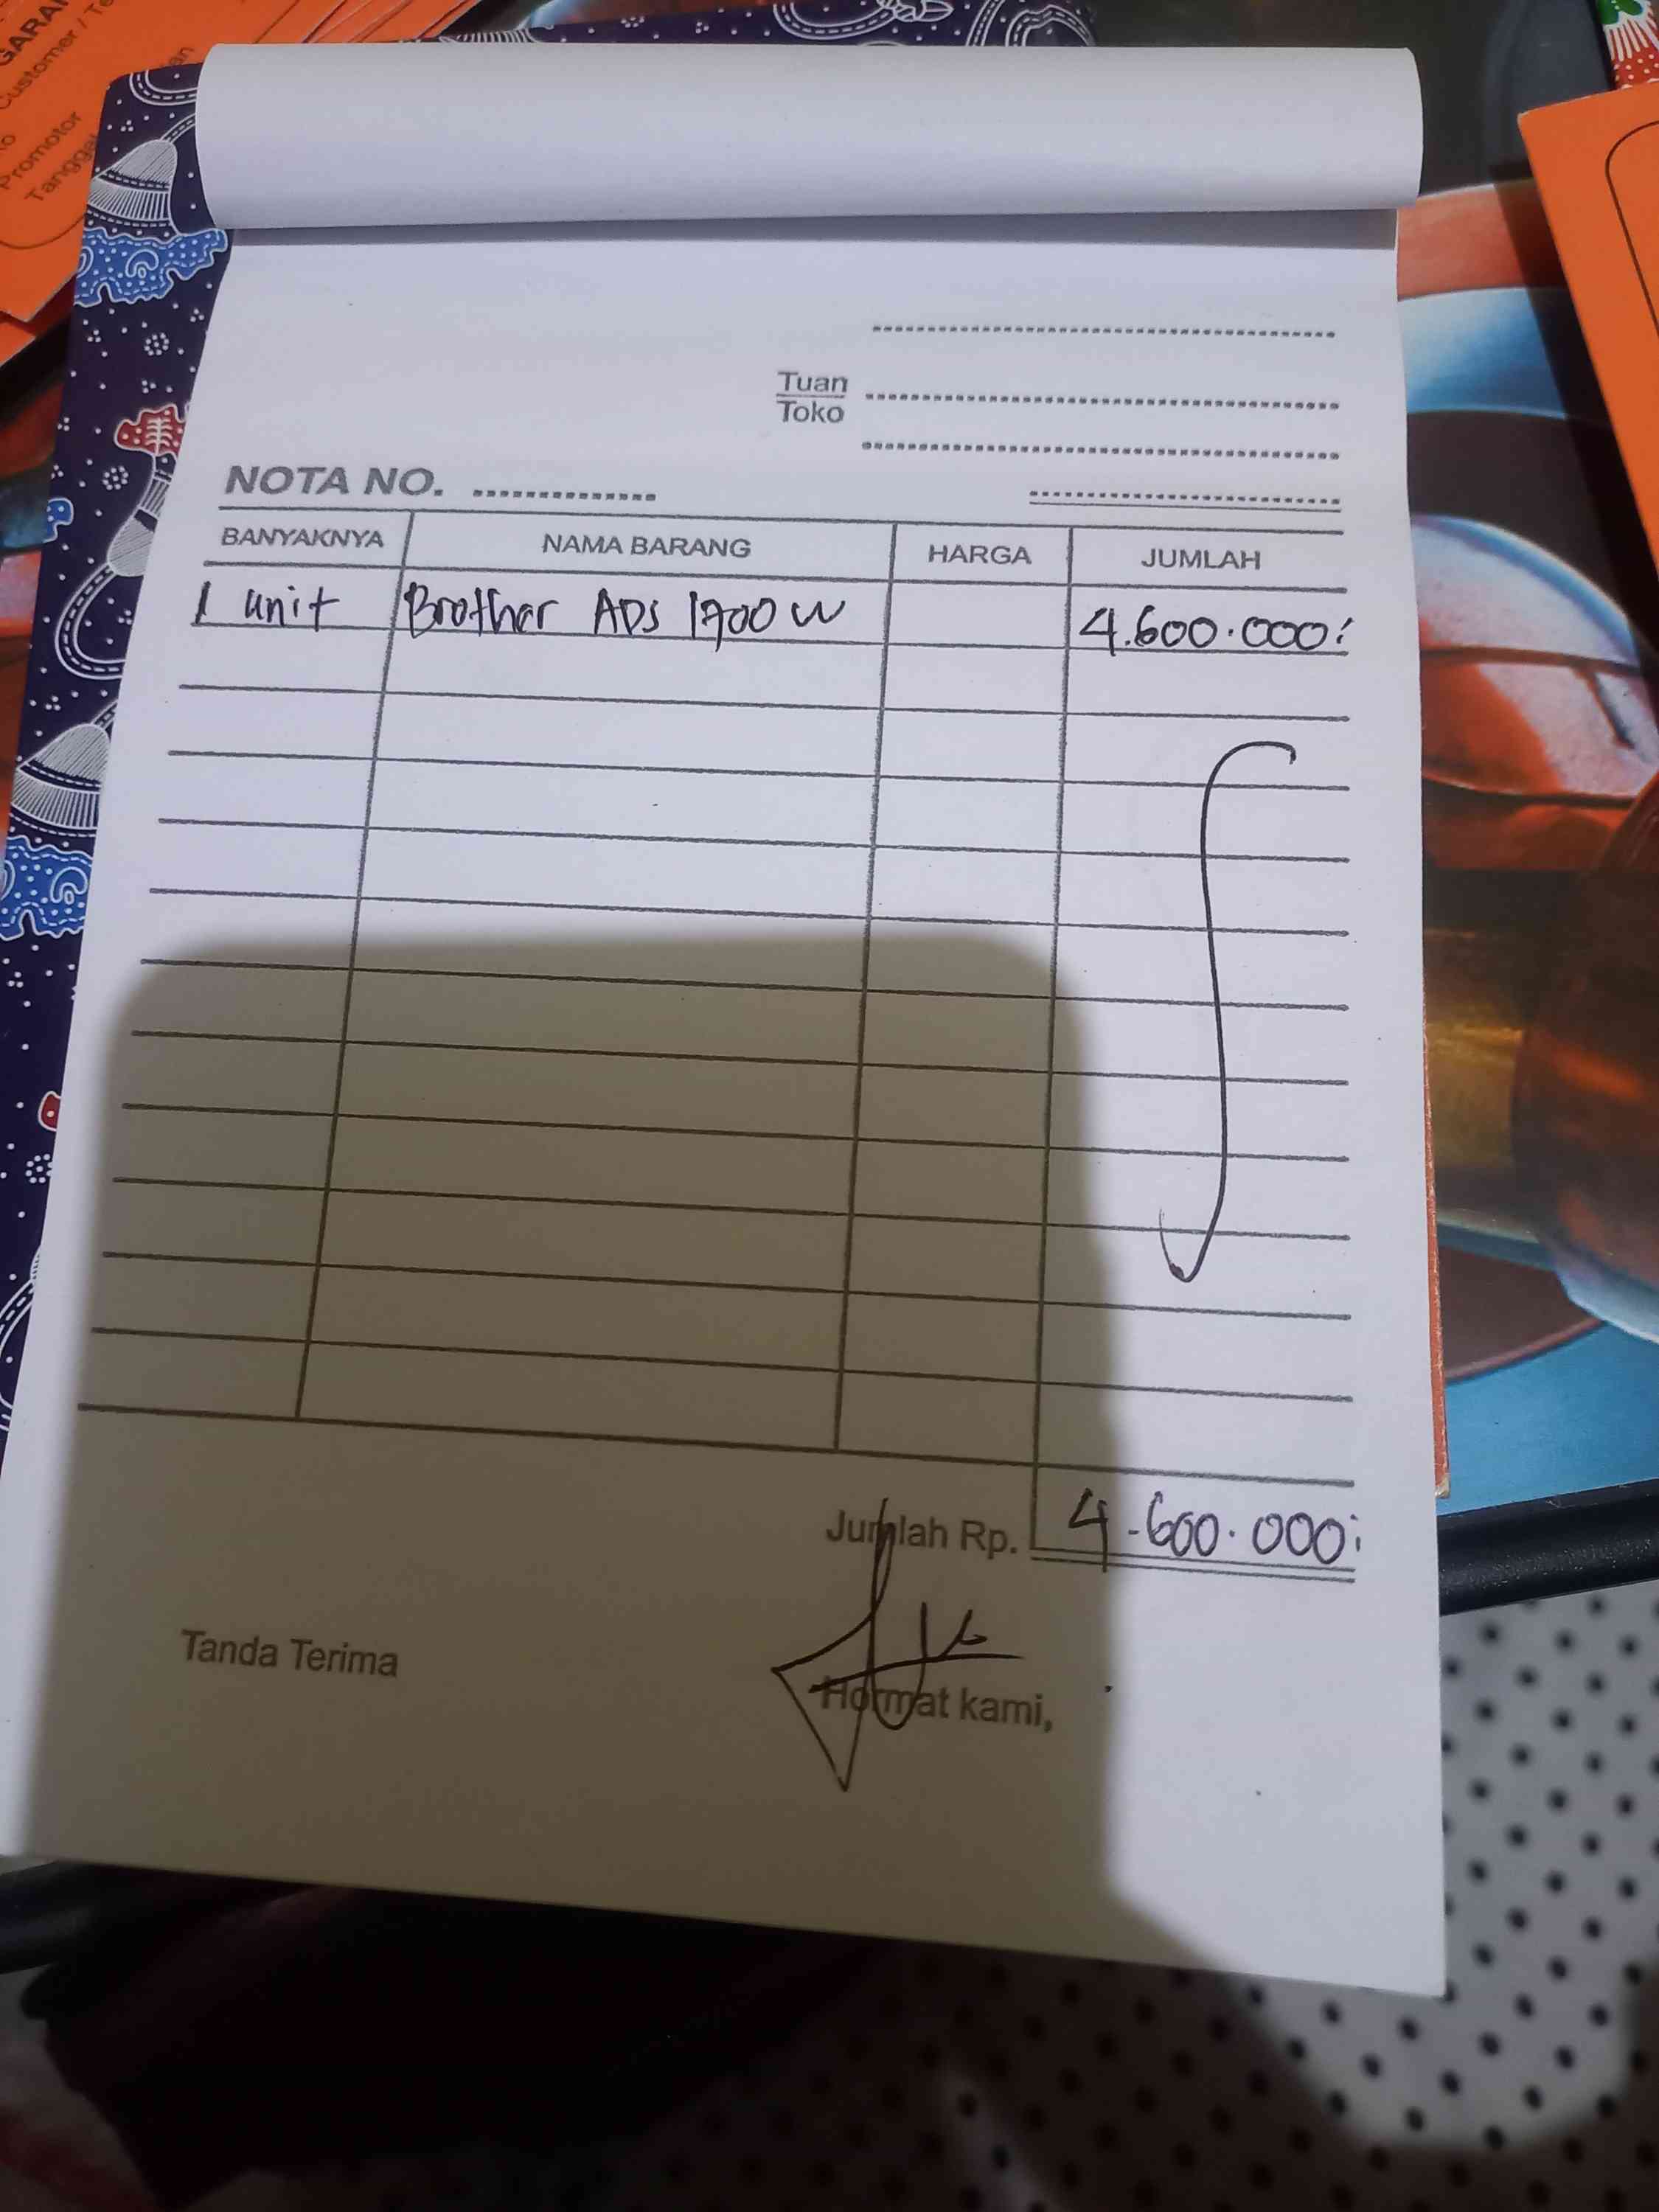 GARAN
Customer / Te
Promotor
Tanggal
Tuan
Toko
NOTA NO.
BANYAKNYA NAMA BARANG HARGA JUMLAH
1 unit Brother ADS 1700 W 4.600.000
Jumlah Rp. 4.600.000
Tanda Terima
Hormat kami,